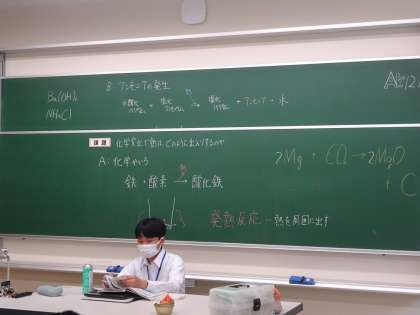 Ba(OH)₂
NH₄Cl
B: アンモニアの発生
水酸化バリウム + 塩化アンモニウム → 塩化バリウム + アンモニア + 水
課題 化学変化で熱はどのように出入りするのか
A: 化学かいろ
鉄 + 酸素 → 酸化鉄
熱
発熱反応 … 熱を周囲に出す
2Mg + CO₂ → 2MgO
+ C